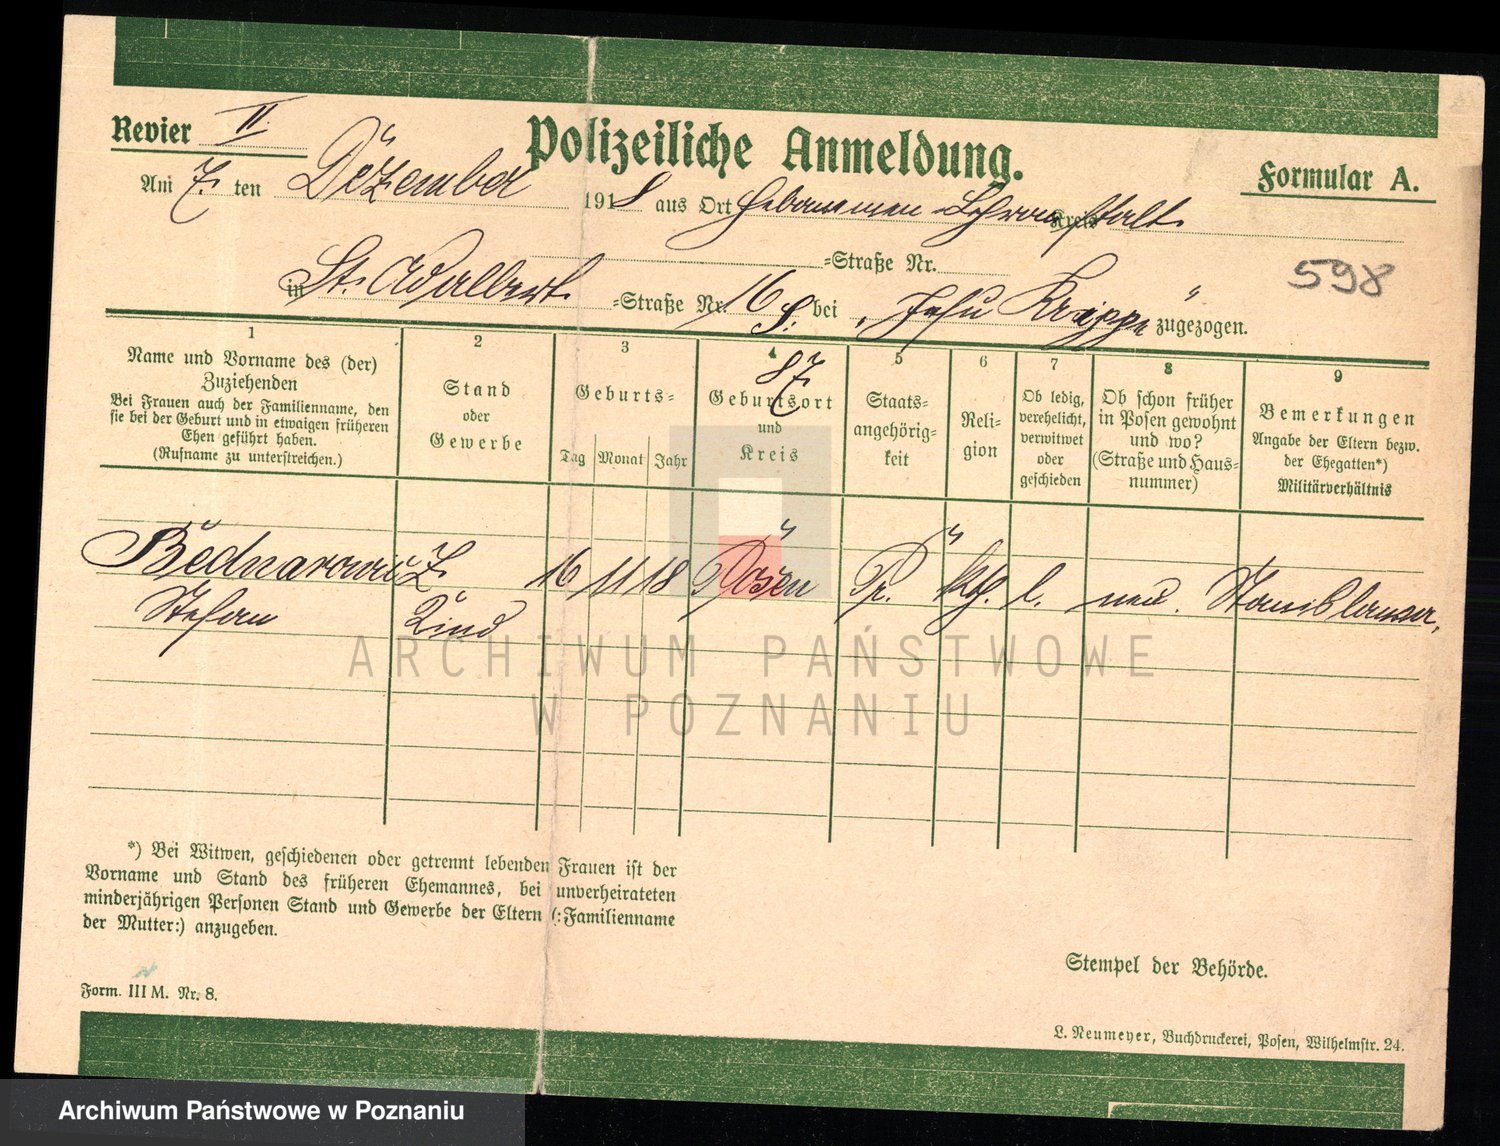 Revier II.
Polizeiliche Anmeldung.
Formular A.
Am 7. ten Dezember 1918 aus Ort Hebammen-Lehranstalt Kreis
=Straße Nr.
598
in St. Adalbert =Straße Nr. 16 bei „Jesu Krippe“ zugezogen.
1
Name und Vorname des (der)
Zuziehenden
Bei Frauen auch der Familienname, den
sie bei der Geburt und in etwaigen früheren
Ehen geführt haben.
(Rufname zu unterstreichen.)
2
Stand
oder
Gewerbe
3
Geburts=
Tag Monat Jahr
4
87
Geburtsort
und
Kreis
5
Staats=
angehörig=
keit
6
Reli=
gion
7
Ob ledig,
verehelicht,
verwitwet
oder
geschieden
8
Ob schon früher
in Posen gewohnt
und wo?
(Straße und Haus=
nummer)
9
Bemerkungen
Angabe der Eltern bezw.
der Ehegatten*)
Militärverhältnis
Bednarowicz 16 11 18 Posen Pr. kth. l. Stanislawa,
Stefan Kind
ARCHIWUM PAŃSTWOWE
W POZNANIU
*) Bei Witwen, geschiedenen oder getrennt lebenden Frauen ist der
Vorname und Stand des früheren Ehemannes, bei unverheirateten
minderjährigen Personen Stand und Gewerbe der Eltern (:Familienname
der Mutter:) anzugeben.
Stempel der Behörde.
Form. III M. Nr. 8.
L. Neumeyer, Buchdruckerei, Posen, Wilhelmstr. 24.
Archiwum Państwowe w Poznaniu